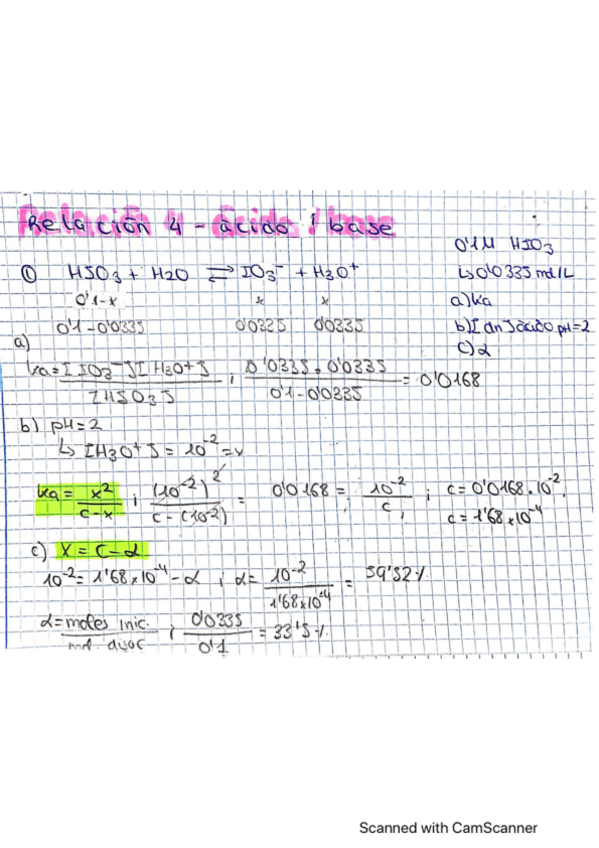 Relación 4 - ácido / base
0'1M HIO3
↳ 0'0335 mol/L
a) ka
b) [ ] ácido pH=2
c) α
① HIO3 + H2O ⇌ IO3⁻ + H3O⁺
0'1-x x x
0'1-0'0335 0'0335 0'0335
a)
ka = [IO3⁻][H3O⁺] / [HIO3] ; 0'0335 · 0'0335 / 0'1-0'0335 = 0'0168
b) pH = 2
↳ [H3O⁺] = 10⁻² = x
ka = x² / c-x ; (10⁻²)² / c-(10⁻²) = 0'0168 = 10⁻² / c ; c = 0'0168·10⁻²,
c = 1'68×10⁻⁴
c) x = c-α
10⁻² = 1'68×10⁻⁴ - α ; α = 10⁻² / 1'68×10⁻⁴ = 59'52%
α = moles inic. / mol. ; 0'0335 / 0'1 = 33'5%
Scanned with CamScanner